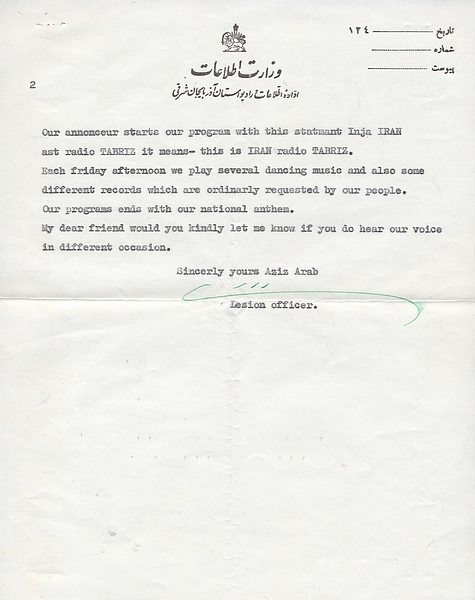 تاریخ ۱۳۴
شماره
پیوست
وزارت اطلاعات
اداره اطلاعات و رادیو استان آذربایجان شرقی
2
Our annonceur starts our program with this statmant Inja IRAN
ast radio TABRIZ it means- this is IRAN radio TABRIZ.
Each friday afternoon we play several dancing music and also some
different records which are ordinarly requested by our people.
Our programs ends with our national anthem.
My dear friend would you kindly let me know if you do hear our voice
in different occasion.
Sincerly yours Aziz Arab
Lesion officer.